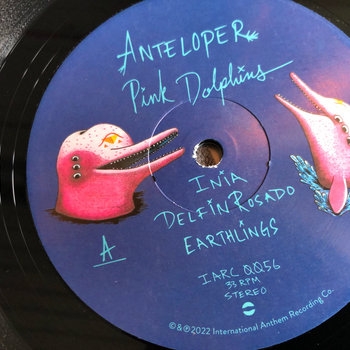 ANTELOPER
Pink Dolphins
INIA
DELFIN ROSADO
EARTHLINGS
A
IARC 0056
33 RPM
STEREO
©&℗2022 International Anthem Recording Co.